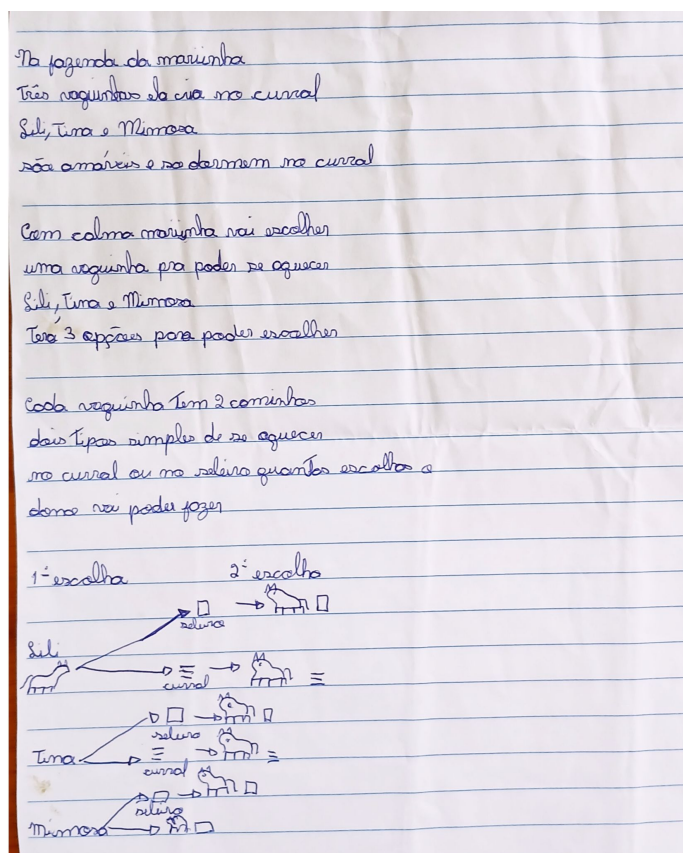 Na fazenda da mariinha
Três vaquinhas ela cria no curral
Lili, Tina e Mimosa
são amáveis e so dormem no curral
Com calma mariinha vai escolher
uma vaquinha pra poder se aquecer
Lili, Tina e Mimosa
Terá 3 opções para poder escolher
Cada vaquinha Tem 2 caminhas
dois Tipos simples de se aquecer
no curral ou no seleiro quantas escolhas a
dona vai poder fazer
1ª escolha 2ª escolha
seleiro
Lili
curral
seleiro
Tina
curral
seleiro
Mimosa